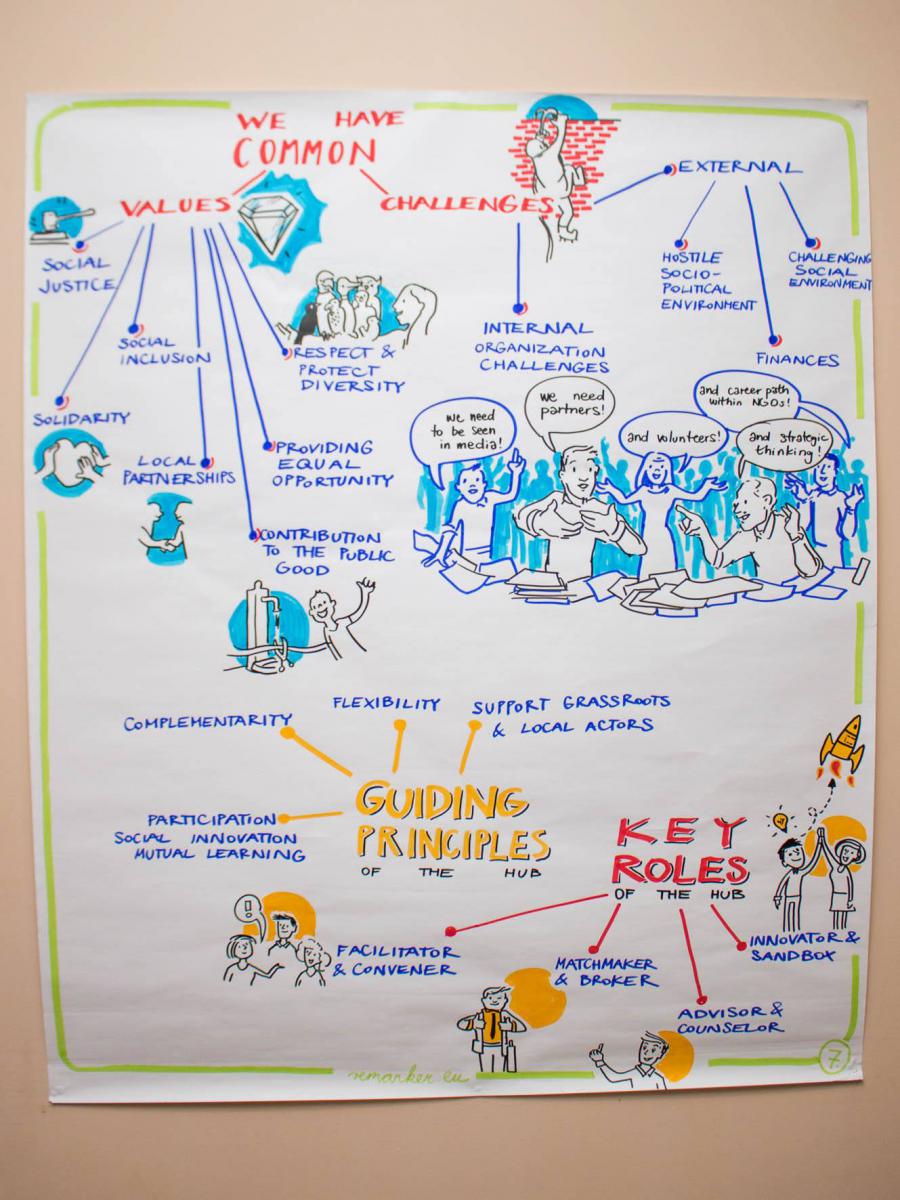 WE HAVE
COMMON
VALUES
CHALLENGES
SOCIAL
JUSTICE
SOCIAL
INCLUSION
SOLIDARITY
LOCAL
PARTNERSHIPS
RESPECT &
PROTECT
DIVERSITY
PROVIDING
EQUAL
OPPORTUNITY
CONTRIBUTION
TO THE PUBLIC
GOOD
INTERNAL
ORGANIZATION
CHALLENGES
EXTERNAL
HOSTILE
SOCIO-
POLITICAL
ENVIRONMENT
FINANCES
CHALLENGING
SOCIAL
ENVIRONMENT
we need
to be seen
in media!
we need
partners!
and volunteers!
and career path
within NGOs!
and strategic
thinking!
COMPLEMENTARITY
FLEXIBILITY
SUPPORT GRASSROOTS
& LOCAL ACTORS
PARTICIPATION
SOCIAL INNOVATION
MUTUAL LEARNING
GUIDING
PRINCIPLES
OF THE HUB
KEY
ROLES
OF THE HUB
!
FACILITATOR
& CONVENER
MATCHMAKER
& BROKER
ADVISOR &
COUNSELOR
INNOVATOR &
SANDBOX
remarker.eu
7